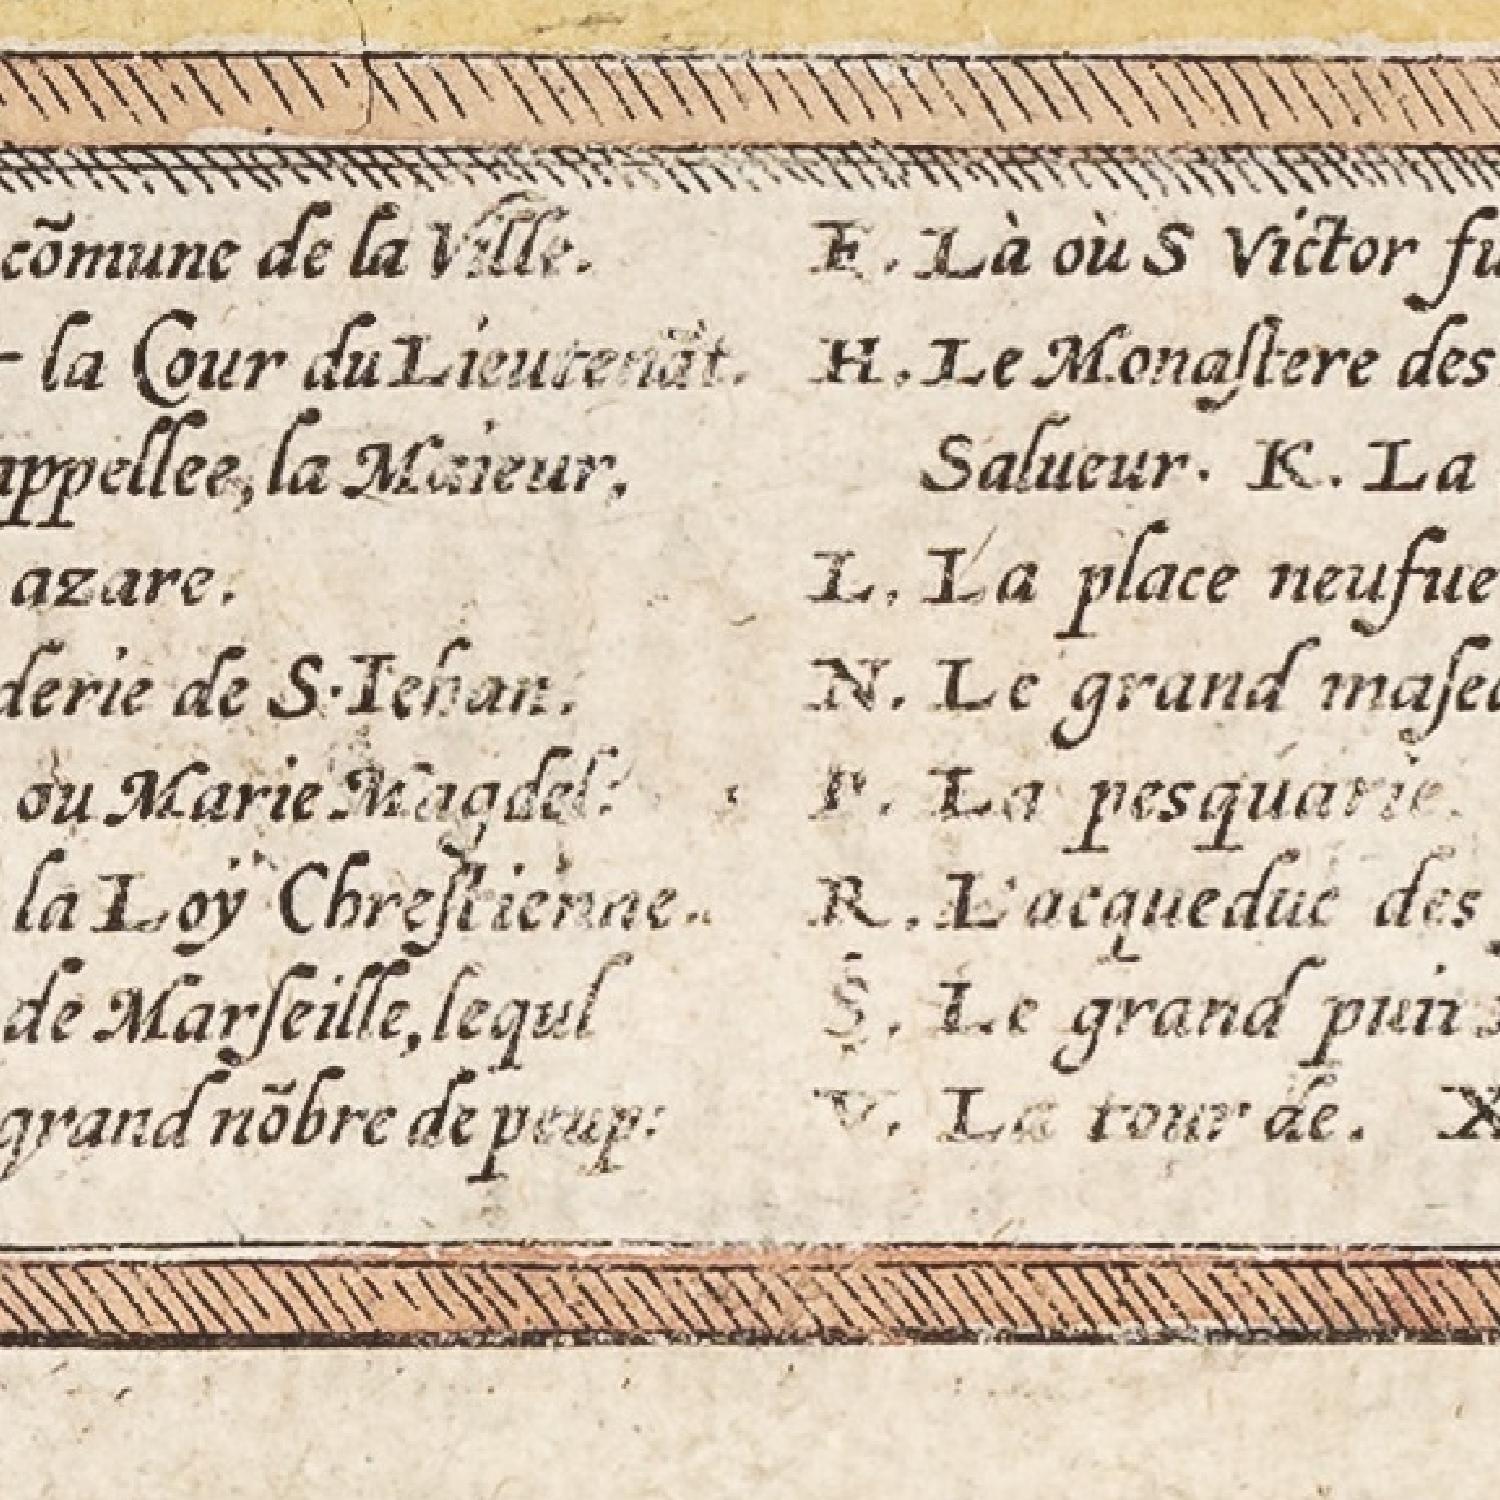 cõmune de la Ville.
la Cour du Lieutenãt.
appellee, la Maieur,
azare.
derie de S. Iehan.
ou Marie Magdel:
la Loÿ Chreſtienne.
de Marſeille, lequl
grand nõbre de peup:
F. Là où S Victor fu
H. Le Monaſtere des
Salueur. K. La
L. La place neufue
N. Le grand maſe
P. La pesquarie.
R. L'acqueduc des
S. Le grand puits
V. La tour de. X